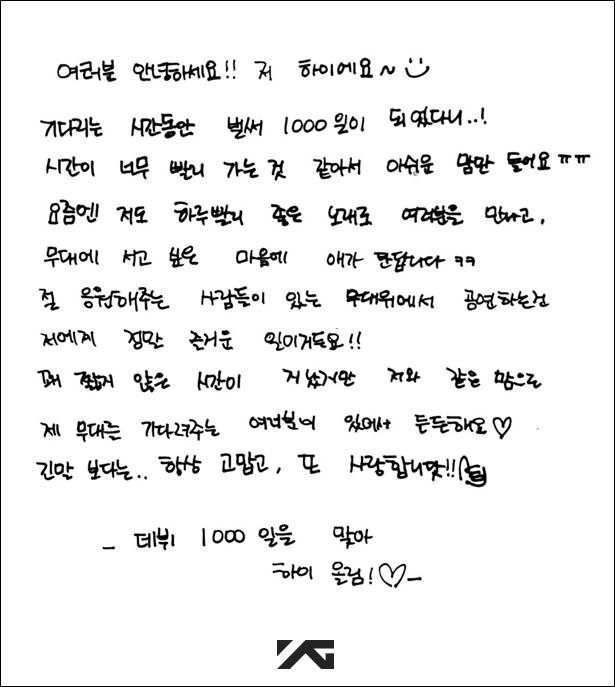 여러분 안녕하세요!! 저 하이에요~
기다리는 시간동안 벌써 1000일이 되었다니..!
시간이 너무 빨리 가는것 같아서 아쉬운 맘만 들어요ㅠㅠ
요즘엔 저도 하루빨리 좋은 노래로 여러분을 만나고,
무대에 서고 싶은 마음에 애가 탄답니다 ㅋㅋ
절 응원해주는 사람들이 있는 무대위에서 공연하는건
저에게 정말 즐거운 일이거든요!!
꽤 짧지 않은 시간이 지났지만 저와 같은 맘으로
제 무대를 기다려주는 여러분이 있어서 든든해요♡
긴말 보다는.. 항상 고맙고, 또 사랑합니다!!
- 데뷔 1000일을 맞아
하이 올림!♡-
YG